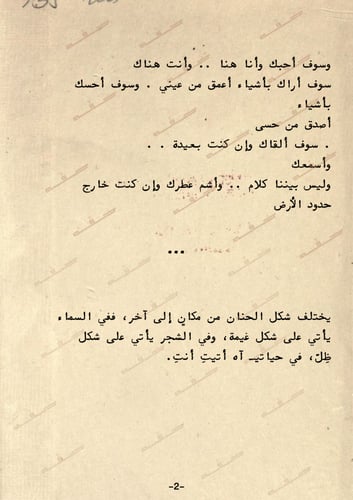 وسوف أحبك وأنا هنا .. وأنت هناك
سوف أراك بأشياء أعمق من عيني . وسوف أحسك
بأشياء
أصدق من حسى
. سوف ألقاك وإن كنت بعيدة . .
وأسمعك
وليس بيننا كلام .. وأشم عطرك وإن كنت خارج
حدود الأرض
***
يختلف شكل الحنان من مكانٍ إلى آخر، ففي السماء
يأتي على شكل غيمة، وفي الشجر يأتي على شكل
ظِلّ، في حياتيـ آه أتيتِ أنتِ.
-2-